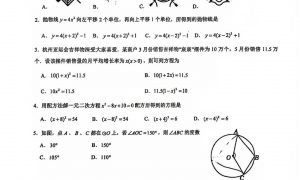 A. B. C. D.
2. 抛物线 y=4x² 向左平移 2 个单位，再向上平移 1 个单位，所得到的抛物线是
A. y=4(x+2)²−1 B. y=4(x−2)²+1 C. y=4(x−2)²−1 D. y=4(x+2)²+1
3. 杭州亚运会吉祥物深受大家喜爱，某商户 5 月份销售吉祥物"宸宸"摆件为 10 万个，7 月份销售 11.5 万
个，设该摆件销售量的月平均增长率为 x(x>0)，则可列方程为
A. 10(1+x)²=11.5 B. 10(1+2x)=11.5
C. 10x²=11.5 D. 11.5(1−x)²=10
4. 用配方法解一元二次方程 x²−8x+10=0 配方后得到的方程是
A. (x+8)²=54 B. (x−8)²=54 C. (x+4)²=6 D. (x−4)²=6
5. 如图，点 A、B、C 都在 ⊙O 上，若 ∠AOC=150°，则 ∠ABC 的度数
A. 30° B. 150°
C. 105° D. 110°
O
A
B
C